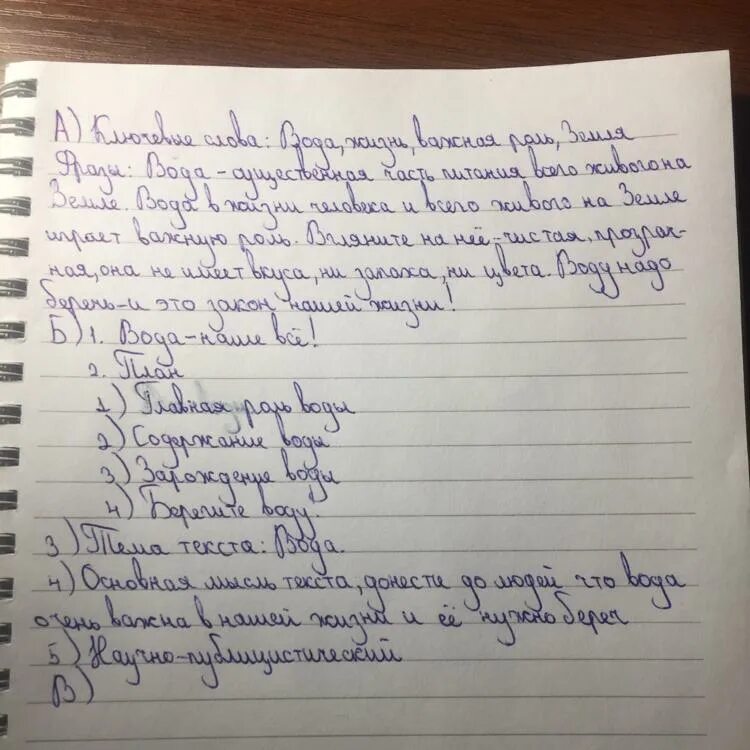 А) Ключевые слова: Вода, жизнь, важная роль, Земля
Фразы: Вода - существенная часть питания всего живого на
Земле. Вода в жизни человека и всего живого на Земле
играет важную роль. Взгляните на неё - чистая, прозрач-
ная, она не имеет вкуса, ни запаха, ни цвета. Воду надо
беречь - и это закон нашей жизни!
Б) 1. Вода - наше всё!
2. План
1) Главная роль воды
2) Содержание воды
3) Зарождение воды
4) Берегите воду.
3) Тема текста: Вода.
4) Основная мысль текста, донести до людей что вода
очень важна в нашей жизни и её нужно береч
5) Научно-публицистический
В)